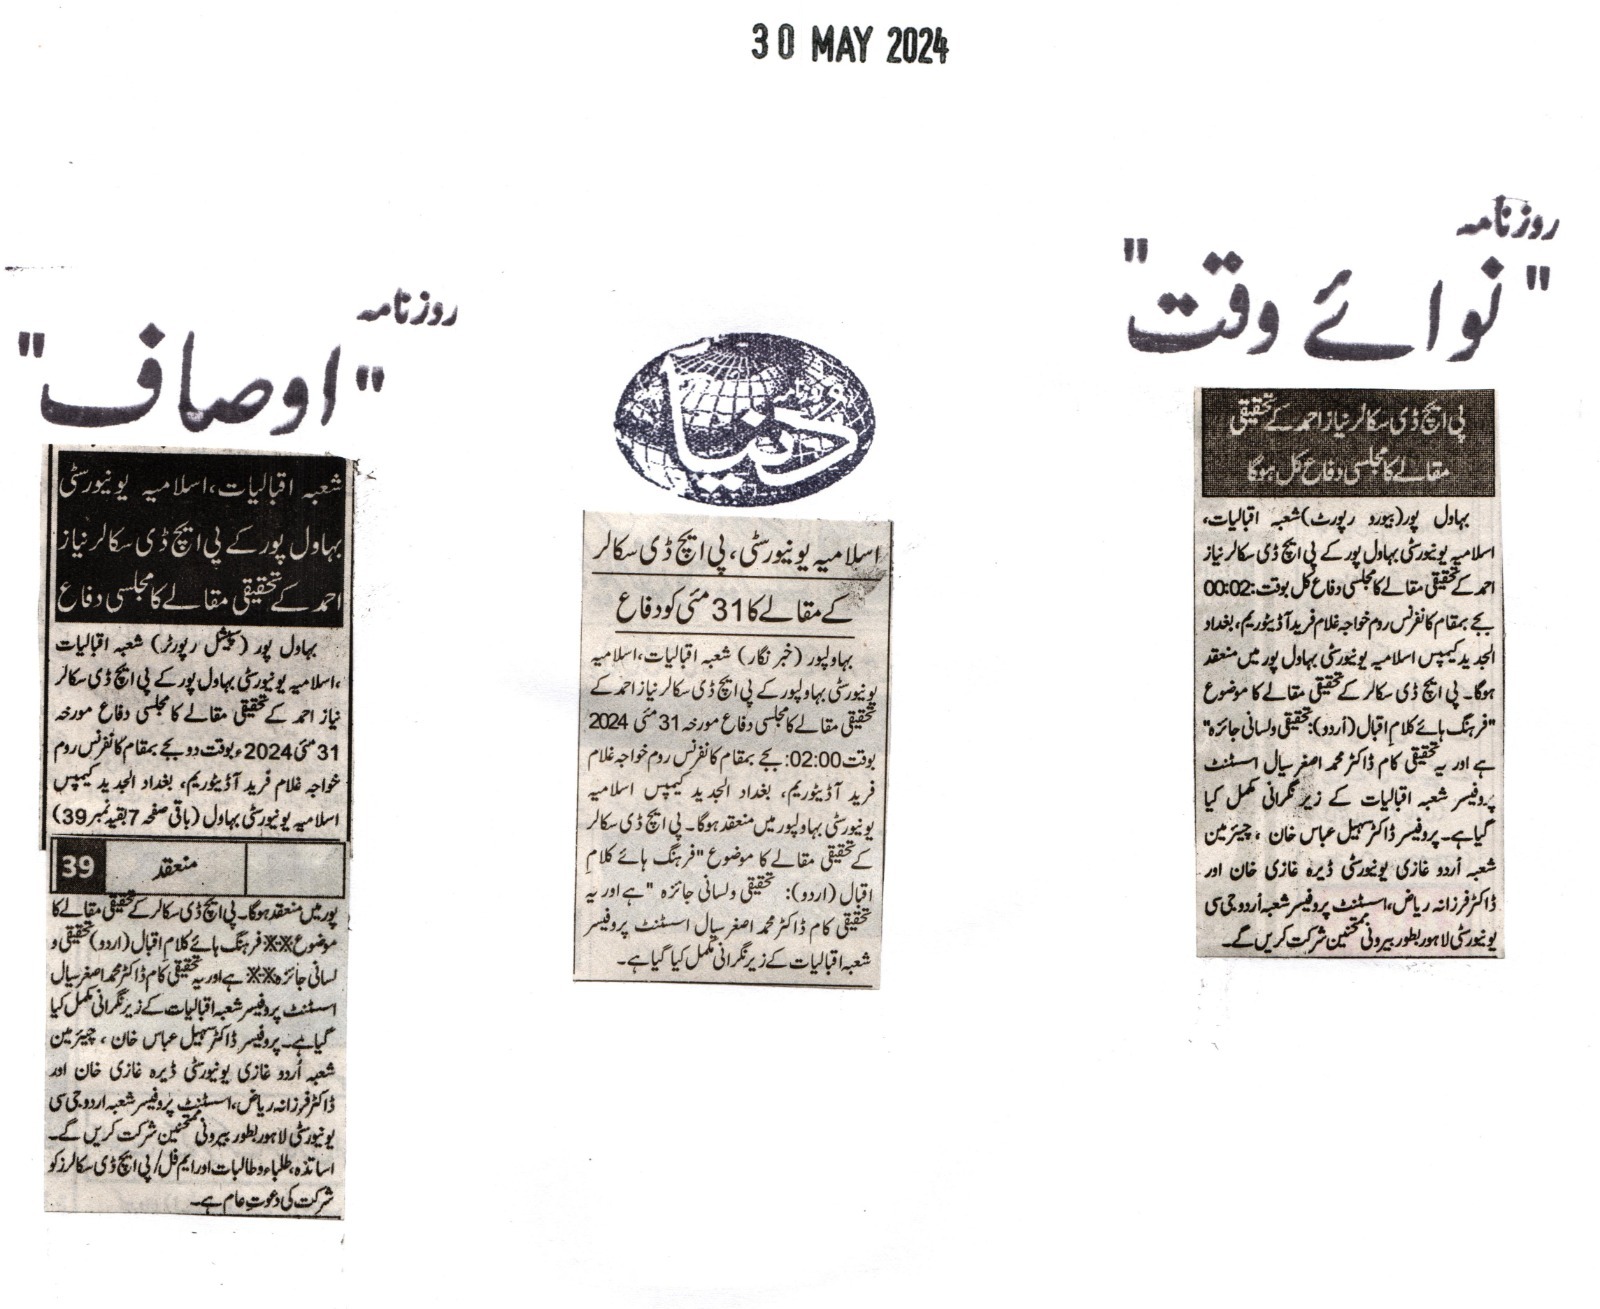 30 MAY 2024
روزنامہ
"نوائے وقت"
پی ایچ ڈی سکالر نیاز احمد کے تحقیقی
مقالے کا مجلسی دفاع کل ہوگا
بہاول پور(بیورو رپورٹ)شعبہ اقبالیات،
اسلامیہ یونیورسٹی بہاول پور کے پی ایچ ڈی سکالر نیاز
احمد کے تحقیقی مقالے کا مجلسی دفاع کل بوقت:00:02
بجے بمقام کانفرنس روم خواجہ غلام فرید آڈیٹوریم، بغداد
الجدید کیمپس اسلامیہ یونیورسٹی بہاول پور میں منعقد
ہوگا۔ پی ایچ ڈی سکالر کے تحقیقی مقالے کا موضوع
"فرہنگ ہائے کلامِ اقبال (اُردو): تحقیقی ولسانی جائزہ"
ہے اور یہ تحقیقی کام ڈاکٹر محمد اصغر سیال اسسٹنٹ
پروفیسر شعبہ اقبالیات کے زیر نگرانی مکمل کیا
گیا ہے۔ پروفیسر ڈاکٹر سہیل عباس خان ، چیئرمین
شعبہ اُردو غازی یونیورسٹی ڈیرہ غازی خان اور
ڈاکٹر فرزانہ ریاض، اسسٹنٹ پروفیسر شعبہ اُردو جی سی
یونیورسٹی لاہور بطور بیرونی ممتحنین شرکت کریں گے۔
دنیا
اسلامیہ یونیورسٹی، پی ایچ ڈی سکالر
کے مقالے کا 31 مئی کو دفاع
بہاولپور (خبر نگار) شعبہ اقبالیات،اسلامیہ
یونیورسٹی بہاولپور کے پی ایچ ڈی سکالر نیاز احمد کے
تحقیقی مقالے کا مجلسی دفاع مورخہ 31 مئی 2024
بوقت02:00: بجے بمقام کانفرنس روم خواجہ غلام
فرید آڈیٹوریم، بغداد الجدید کیمپس اسلامیہ
یونیورسٹی بہاولپور میں منعقد ہوگا۔ پی ایچ ڈی سکالر
کے تحقیقی مقالے کا موضوع "فرہنگ ہائے کلامِ
اقبال (اردو): تحقیقی ولسانی جائزہ "ہے اور یہ
تحقیقی کام ڈاکٹر محمد اصغر سیال اسسٹنٹ پروفیسر
شعبہ اقبالیات کے زیر نگرانی مکمل کیا گیا ہے۔
روزنامہ
"اوصاف"
شعبہ اقبالیات،اسلامیہ یونیورسٹی
بہاول پور کے پی ایچ ڈی سکالر نیاز
احمد کے تحقیقی مقالے کا مجلسی دفاع
بہاول پور (سپیشل رپورٹر) شعبہ اقبالیات
،اسلامیہ یونیورسٹی بہاول پور کے پی ایچ ڈی سکالر
نیاز احمد کے تحقیقی مقالے کا مجلسی دفاع مورخہ
31 مئی 2024ء بوقت دو بجے بمقام کانفرنس روم
خواجہ غلام فرید آڈیٹوریم، بغداد الجدید کیمپس
اسلامیہ یونیورسٹی بہاول (باقی صفحہ 7 بقیہ نمبر 39)
منعقد 39
پور میں منعقد ہوگا۔ پی ایچ ڈی سکالر کے تحقیقی مقالے کا
موضوع※※فرہنگ ہائے کلامِ اقبال (اردو) تحقیقی و
لسانی جائزہ※※ ہے اور یہ تحقیقی کام ڈاکٹر محمد اصغر سیال
اسسٹنٹ پروفیسر شعبہ اقبالیات کے زیر نگرانی مکمل کیا
گیا ہے۔ پروفیسر ڈاکٹر سہیل عباس خان ، چیئرمین
شعبہ اُردو غازی یونیورسٹی ڈیرہ غازی خان اور
ڈاکٹر فرزانہ ریاض، اسسٹنٹ پروفیسر شعبہ اردو جی سی
یونیورسٹی لاہور بطور بیرونی ممتحنین شرکت کریں گے۔
اساتذہ، طلباء و طالبات اور ایم فل/ پی ایچ ڈی سکالرز کو
شرکت کی دعوتِ عام ہے۔